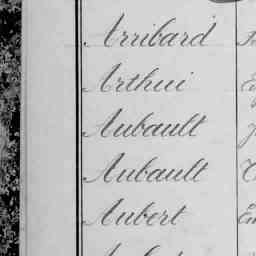 Arribard
Arthui
Aubault
Aubault
Aubert